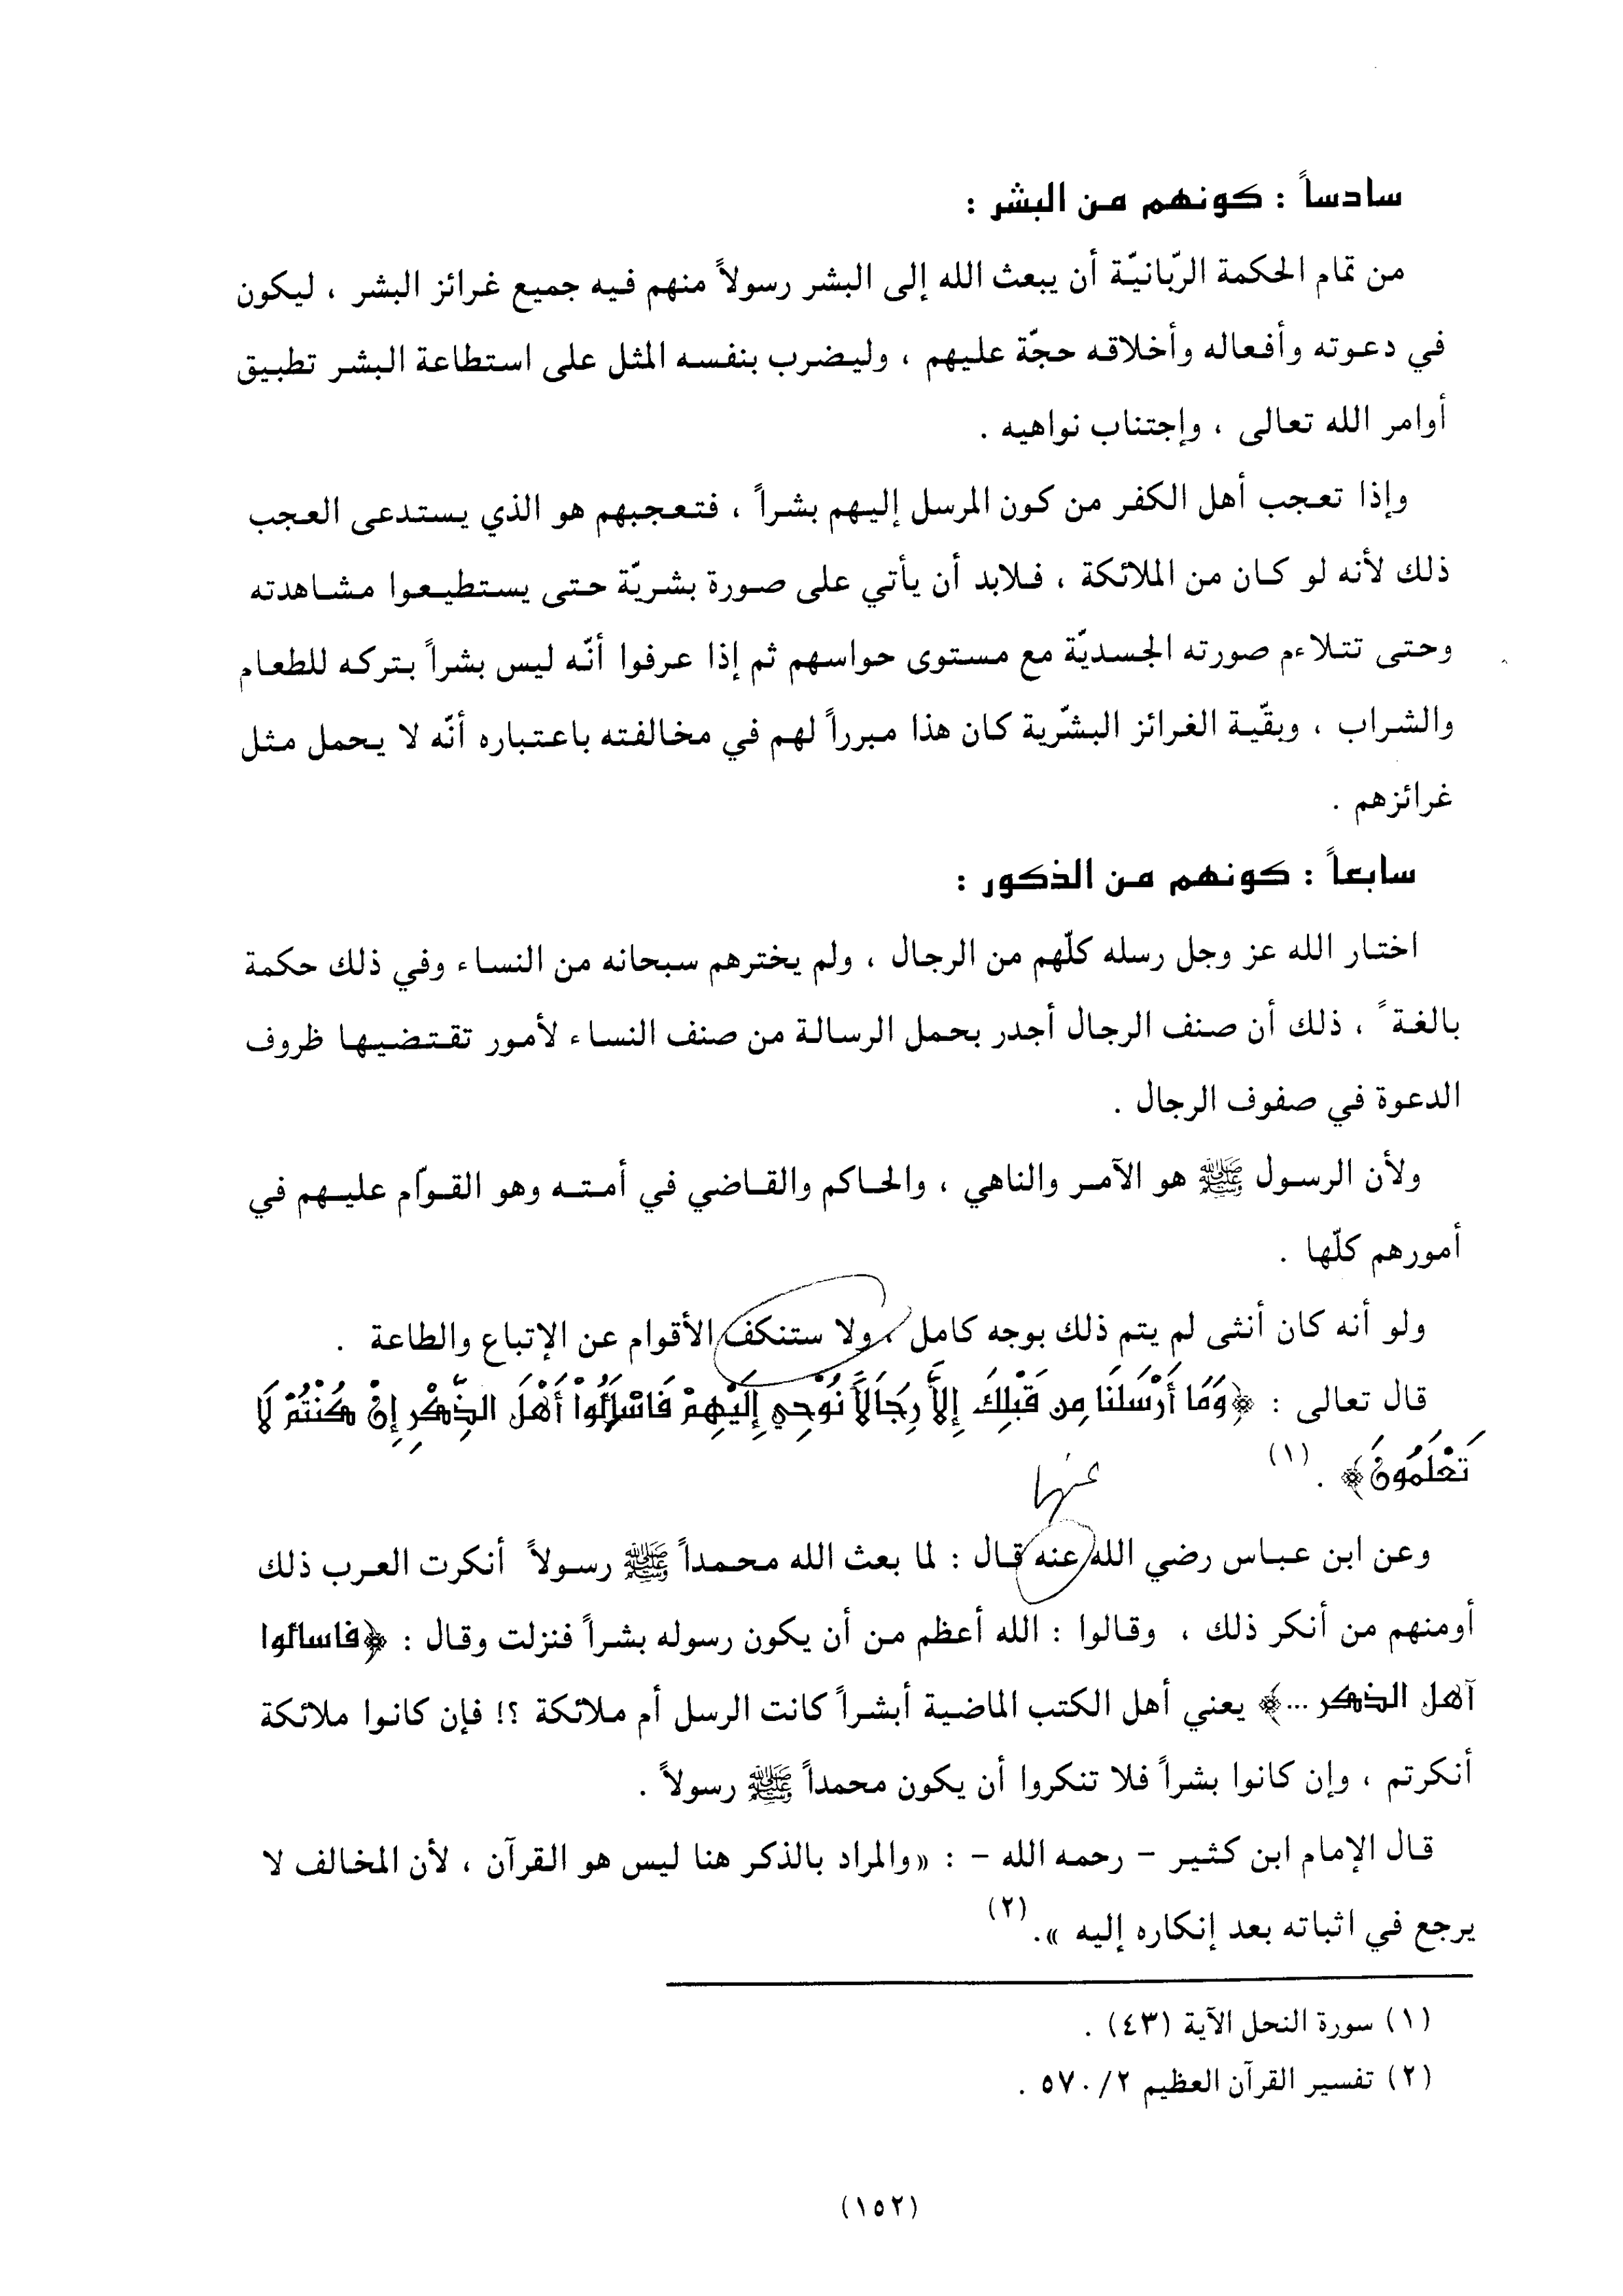 سادساً : كونهم من البشر :
من تمام الحكمة الربّانيّة أن يبعث الله إلى البشر رسولاً منهم فيه جميع غرائز البشر ، ليكون
في دعوته وأفعاله وأخلاقه حجّة عليهم ، وليضرب بنفسه المثل على استطاعة البشر تطبيق
أوامر الله تعالى ، وإجتناب نواهيه .
وإذا تعجب أهل الكفر من كون المرسل إليهم بشراً ، فتعجبهم هو الذي يستدعى العجب
ذلك لأنه لو كان من الملائكة ، فلابد أن يأتي على صورة بشريّة حتى يستطيعوا مشاهدته
وحتى تتلاءم صورته الجسديّة مع مستوى حواسهم ثم إذا عرفوا أنّه ليس بشراً بتركه للطعام
والشراب ، وبقّية الغرائز البشّرية كان هذا مبرراً لهم في مخالفته باعتباره أنّه لا يحمل مثل
غرائزهم .
سابعاً : كونهم من الذكور :
اختار الله عز وجل رسله كلّهم من الرجال ، ولم يخترهم سبحانه من النساء وفي ذلك حكمة
بالغة ً ، ذلك أن صنف الرجال أجدر بحمل الرسالة من صنف النساء لأمور تقتضيها ظروف
الدعوة في صفوف الرجال .
ولأن الرسول ﷺ هو الآمر والناهي ، والحاكم والقاضي في أمته وهو القوّام عليهم في
أمورهم كلّها .
ولو أنه كان أنثى لم يتم ذلك بوجه كامل ، ولا ستنكف الأقوام عن الإتباع والطاعة .
قال تعالى : ﴿وَمَا أَرْسَلْنَا مِن قَبْلِكَ إِلاَّ رِجَالاً نُوْحِي إِلَيْهِمْ فَاسْأَلُواْ أَهْلَ الذِّكْرِ إِنْ كُنْتُمْ لَا
تَعْلَمُونَ﴾ . (١)
عنهما
وعن ابن عباس رضي الله عنه قال : لما بعث الله محمداً ﷺ رسولاً أنكرت العرب ذلك
أومنهم من أنكر ذلك ، وقالوا : الله أعظم من أن يكون رسوله بشراً فنزلت وقال : ﴿فاسألوا
أهل الذكر ...﴾ يعني أهل الكتب الماضية أبشراً كانت الرسل أم ملائكة ؟! فإن كانوا ملائكة
أنكرتم ، وإن كانوا بشراً فلا تنكروا أن يكون محمداً ﷺ رسولاً .
قال الإمام ابن كثير – رحمه الله – : «والمراد بالذكر هنا ليس هو القرآن ، لأن المخالف لا
يرجع في اثباته بعد إنكاره إليه ». (٢)
(١) سورة النحل الآية (٤٣) .
(٢) تفسير القرآن العظيم ٥٧٠/٢ .
(١٥٢)